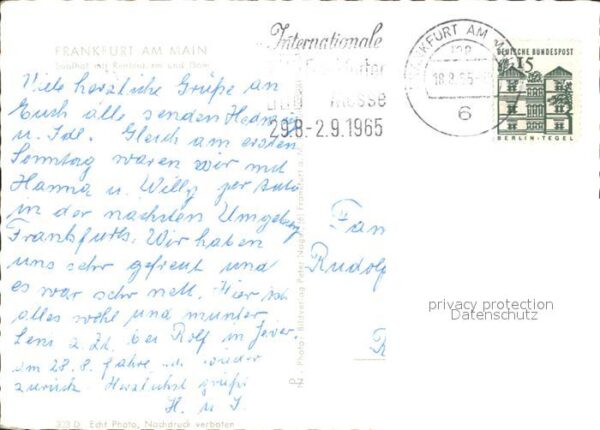 FRANKFURT AM MAIN
Saalhof mit Rententurm und Dom
Internationale
Frankfurter
Messe
29.8.-2.9.1965
FRANKFURT AM
18.8.65
6
DEUTSCHE BUNDESPOST
15
BERLIN-TEGEL
Viele herzliche Grüße an
Euch alle senden
u. Gleich am ersten
Sonntag waren wir mit
Hanna u. Willy per Auto
in der nächsten Umgebg
Frankfurts. Wir haben
uns sehr gefreut und
es war sehr nett. Hier ist
alles wohl und munter.
Leni z. Zt. bei Rolf in Jever.
am 28.8. fahre wieder
zurück. Herzlichst grüßt
H. u I.
Fam
Rudolf
R
Photo - Bildverlag Peter Frankfurt
privacy protection
Datenschutz
313 D Echt Photo, Nachdruck verboten